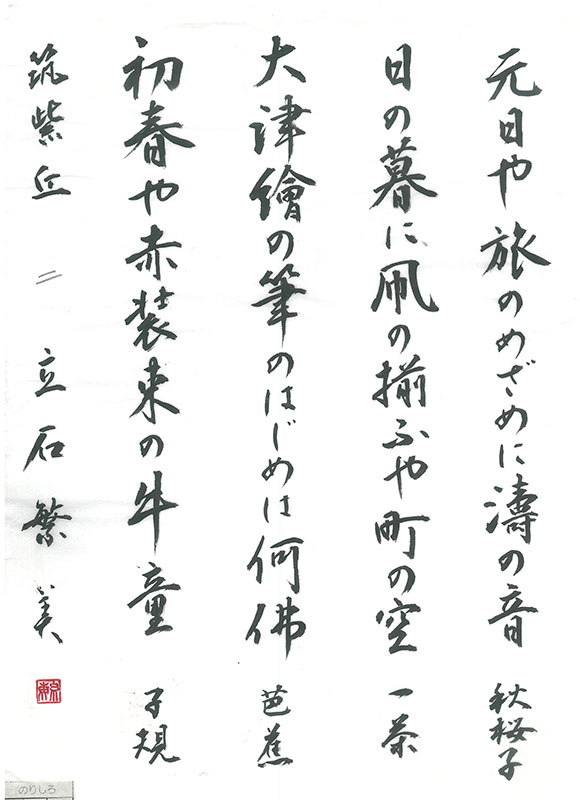 元日や旅のめざめに濤の音 秋桜子
日の暮に凧の揃ふや町の空 一茶
大津繪の筆のはじめは何佛 芭蕉
初春や赤装束の牛童 子規
筑紫丘 〃 立石繁美
のりしろ